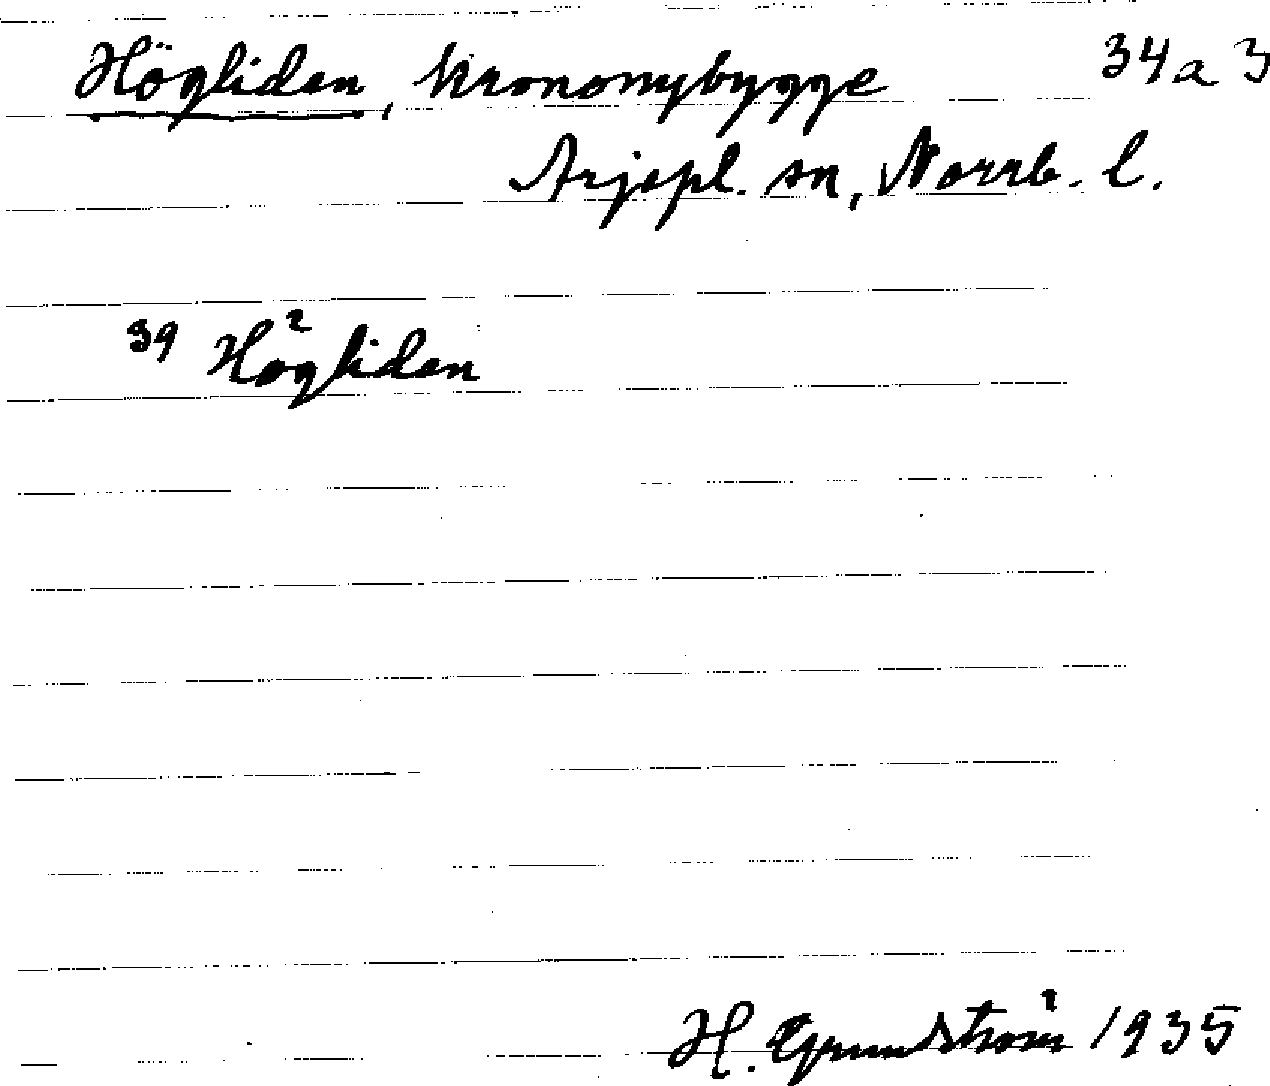 Högliden, kronomybygge 34a 3
Arjepl. sn, Norrb. l.
39 Hø²gliden
H. Grundström 1935